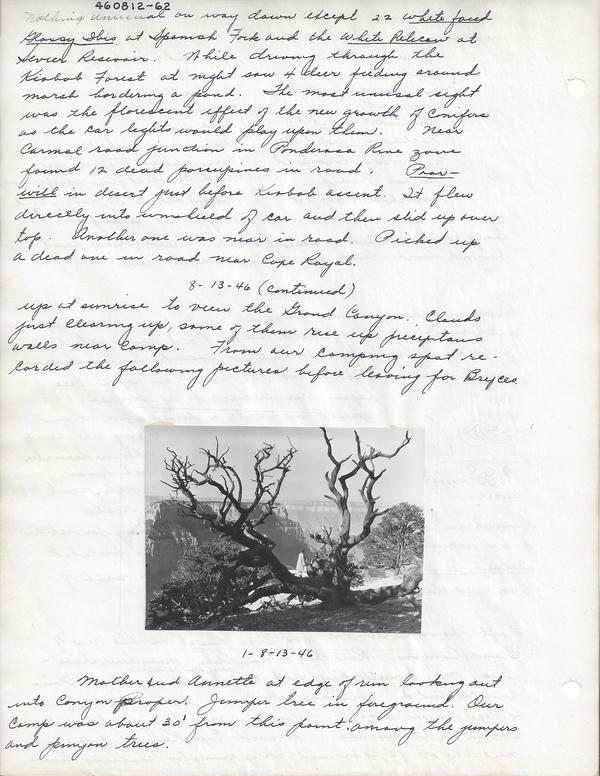 460812-62
Nothing unusual on way down except 22 white faced
Glossy Ibis at Spanish Fork and the White Pelican at
Sevier Resevoir. While driving through the
Kiabab Forest at night saw 4 deer feeding around
marsh bordering a pond. The most unusual sight
was the florescent effect of the new growth of Conifers
as the car lights would play upon them. Near
Carmal road junction in Ponderosa Pine zone
found 12 dead porcupines in road. Poor-
will in desert just before Kiabab ascent. It flew
directly into winshield of car and then slid up over
top. Another one was near in road. Picked up
a dead one in road near Cape Royal.
8-13-46 (continued)
up at sunrise to view the Grand Canyon. Clouds
just clearing up, some of them rise up preciptous
walls near Camp. From our camping spot re-
corded the following pictures before leaving for Bryces
1-8-13-46
Mother and Annette at edge of rim looking out
into Canyon Proper. Juniper tree in foreground. Our
Camp was about 30' from this point, among the junipers
and pinyon trees.